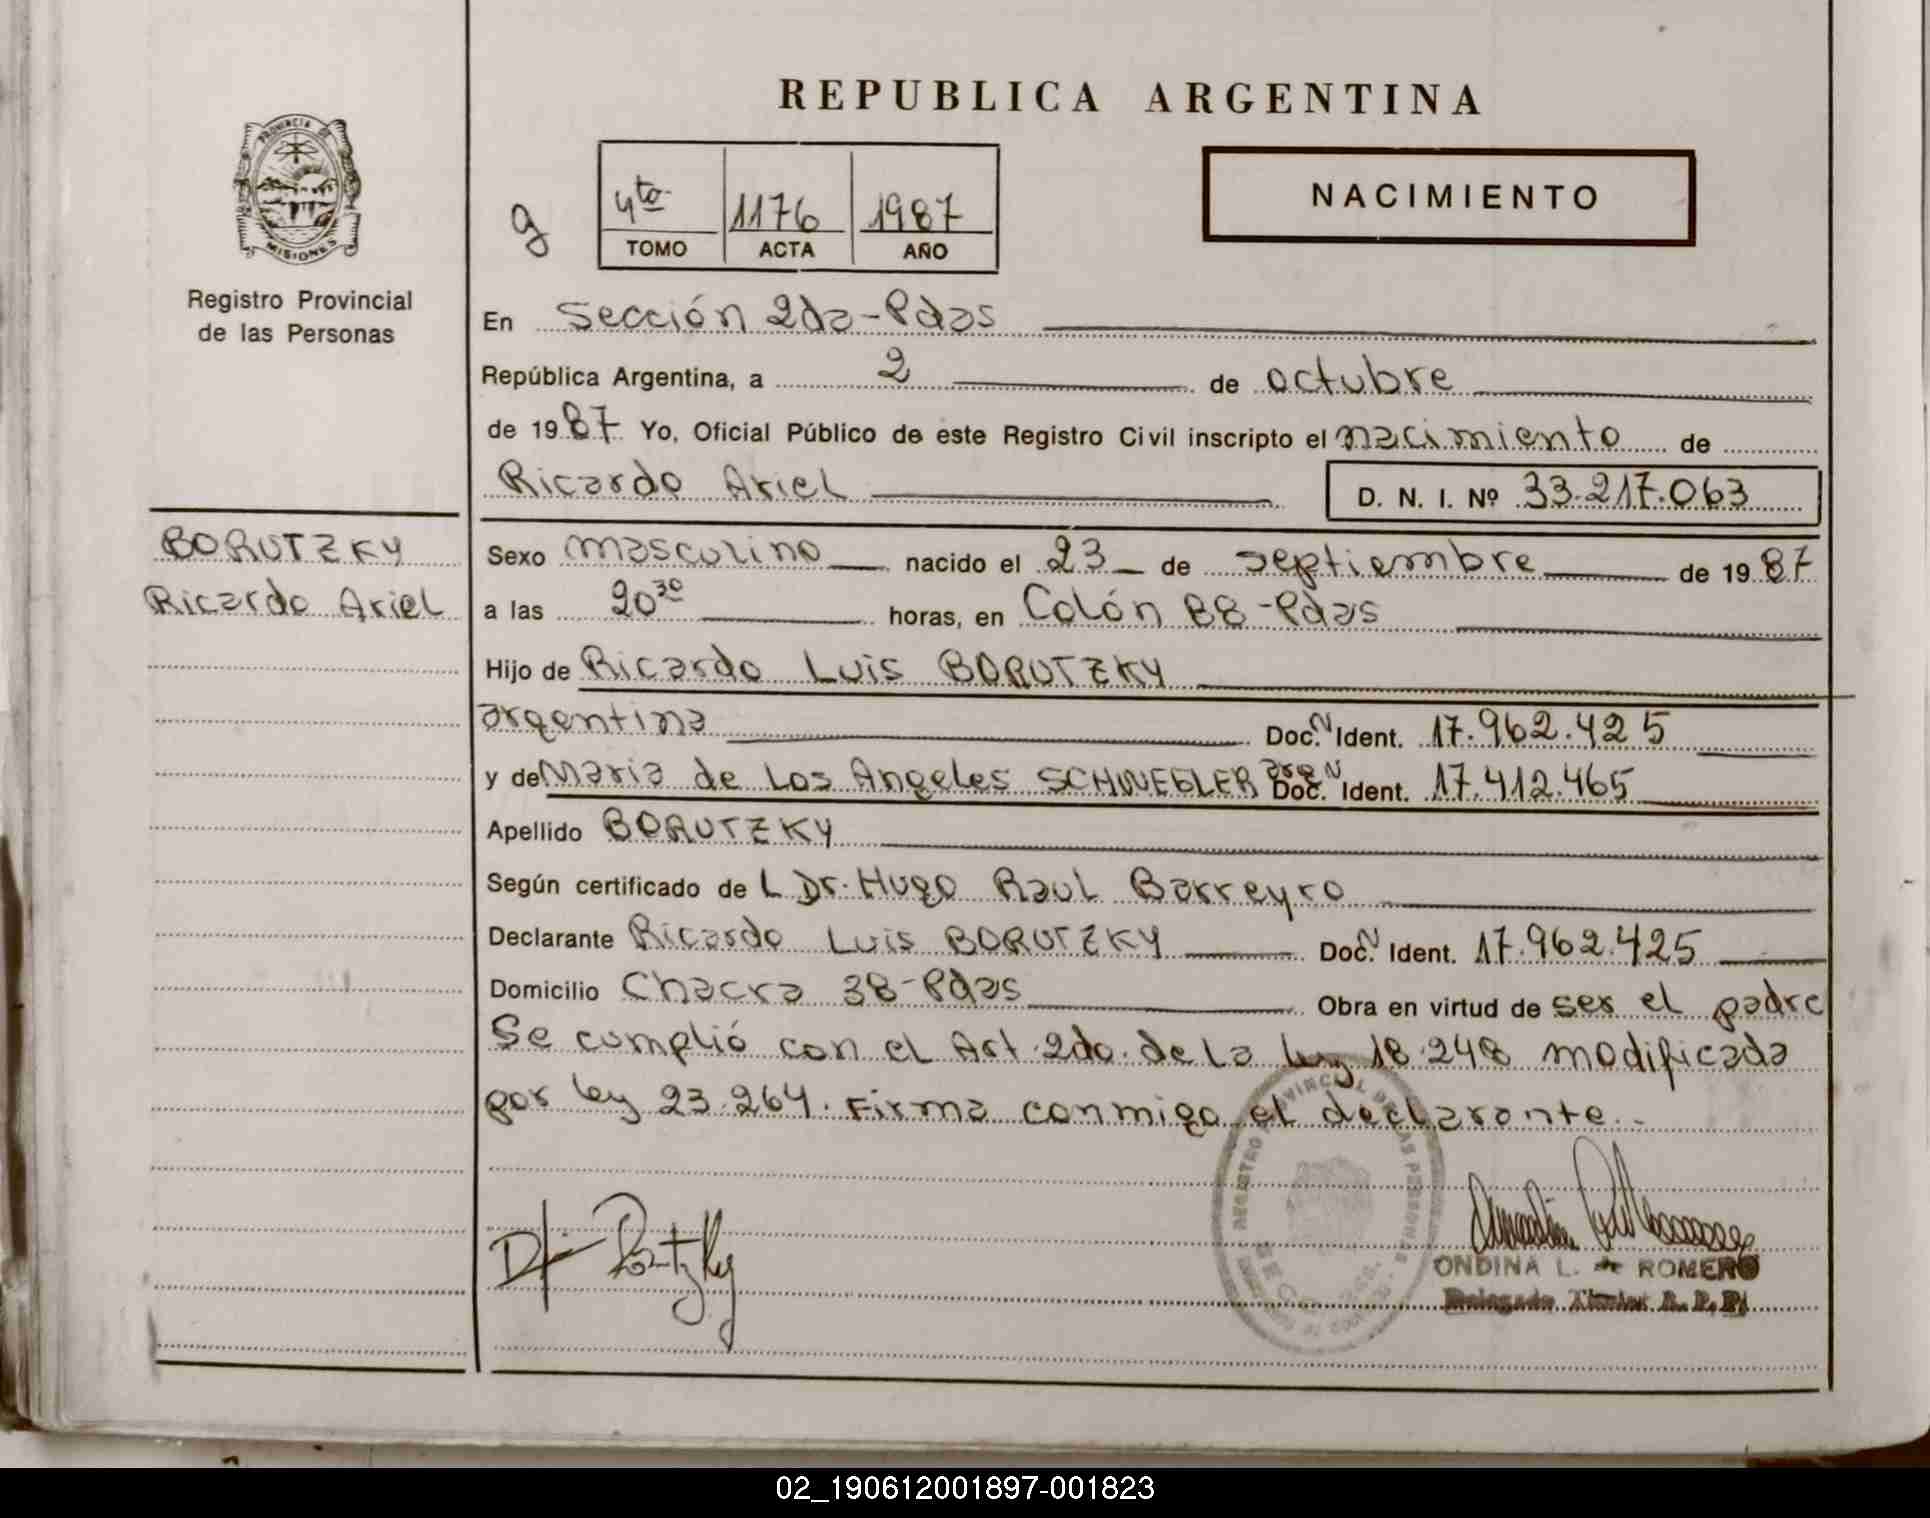 REPUBLICA ARGENTINA
PROVINCIA DE
MISIONES
Registro Provincial
de las Personas
g
4to
1176
1987
TOMO
ACTA
AÑO
NACIMIENTO
En Sección 2da-Pdas
República Argentina, a 2 de octubre
de 1987 Yo, Oficial Público de este Registro Civil inscripto el nacimiento de
Ricardo Ariel D. N. I. Nº 33.217.063
BORUTZKY
Ricardo Ariel
Sexo masculino nacido el 23 de septiembre de 1987
a las 20 30 horas, en Colón BB-Pdas
Hijo de Ricardo Luis BORUTZKY
argentina Doc. N Ident. 17.962.425
y de Maria de Los Angeles SCHWEGLER arg N Doc. Ident. 17.412.465
Apellido BORUTZKY
Según certificado de L Dr. Hugo Raul Barreyro
Declarante Ricardo Luis BORUTZKY Doc. N Ident. 17.962.425
Domicilio Chacra 38-Pdas Obra en virtud de ser el padre
Se cumplió con el Art. 2do. de la ley 18.248 modificada
por ley 23.264. Firma conmigo el declarante.-
REGISTRO PROVINCIAL DE LAS PERSONAS
ONDINA L. de ROMERO
Delegado Titular R. P. P.
02_190612001897-001823